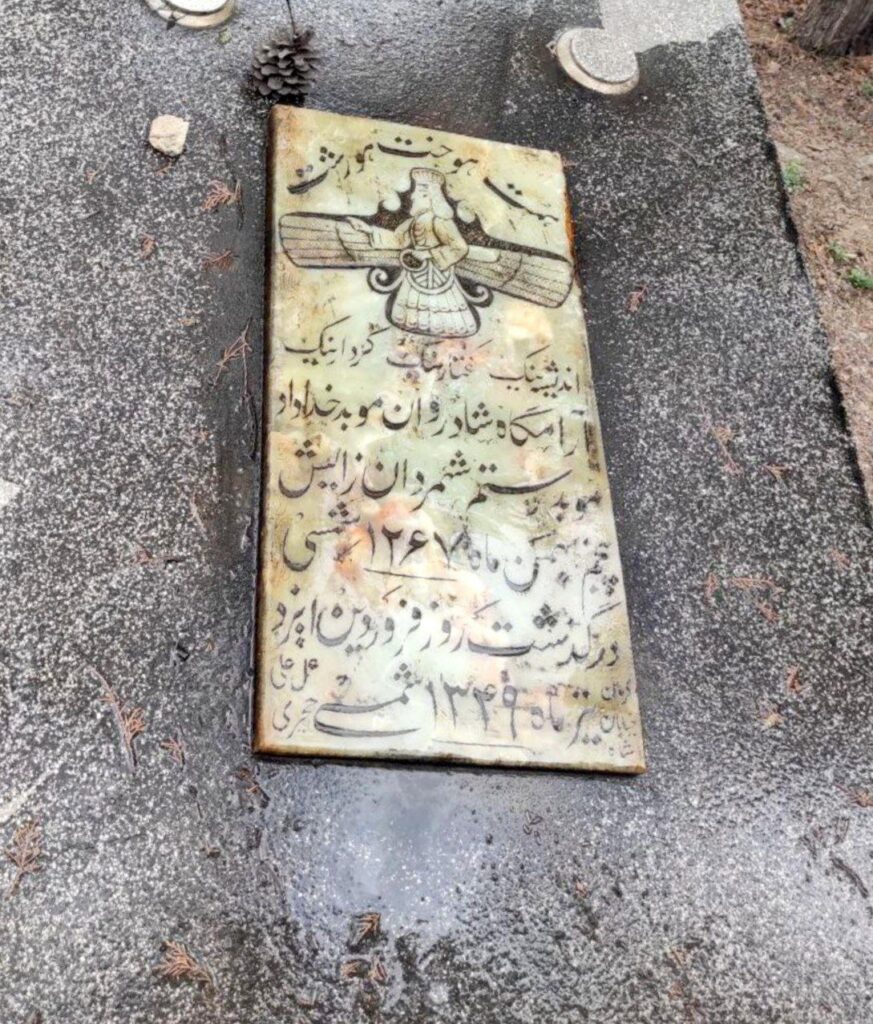 هومت هوخت هورشت
اندیشه نیک گفتار نیک کردار نیک
آرامگاه شادروان موبد خداداد
موبد رستم شهمردان زایش
پنجم بهمن ماه ۱۲۶۷ شمسی
درگذشت روز فروردین ایزد
تیر ماه ۱۳۴۹ شمسی
عمل علی
حجری
کرمان
خیابان
شاه